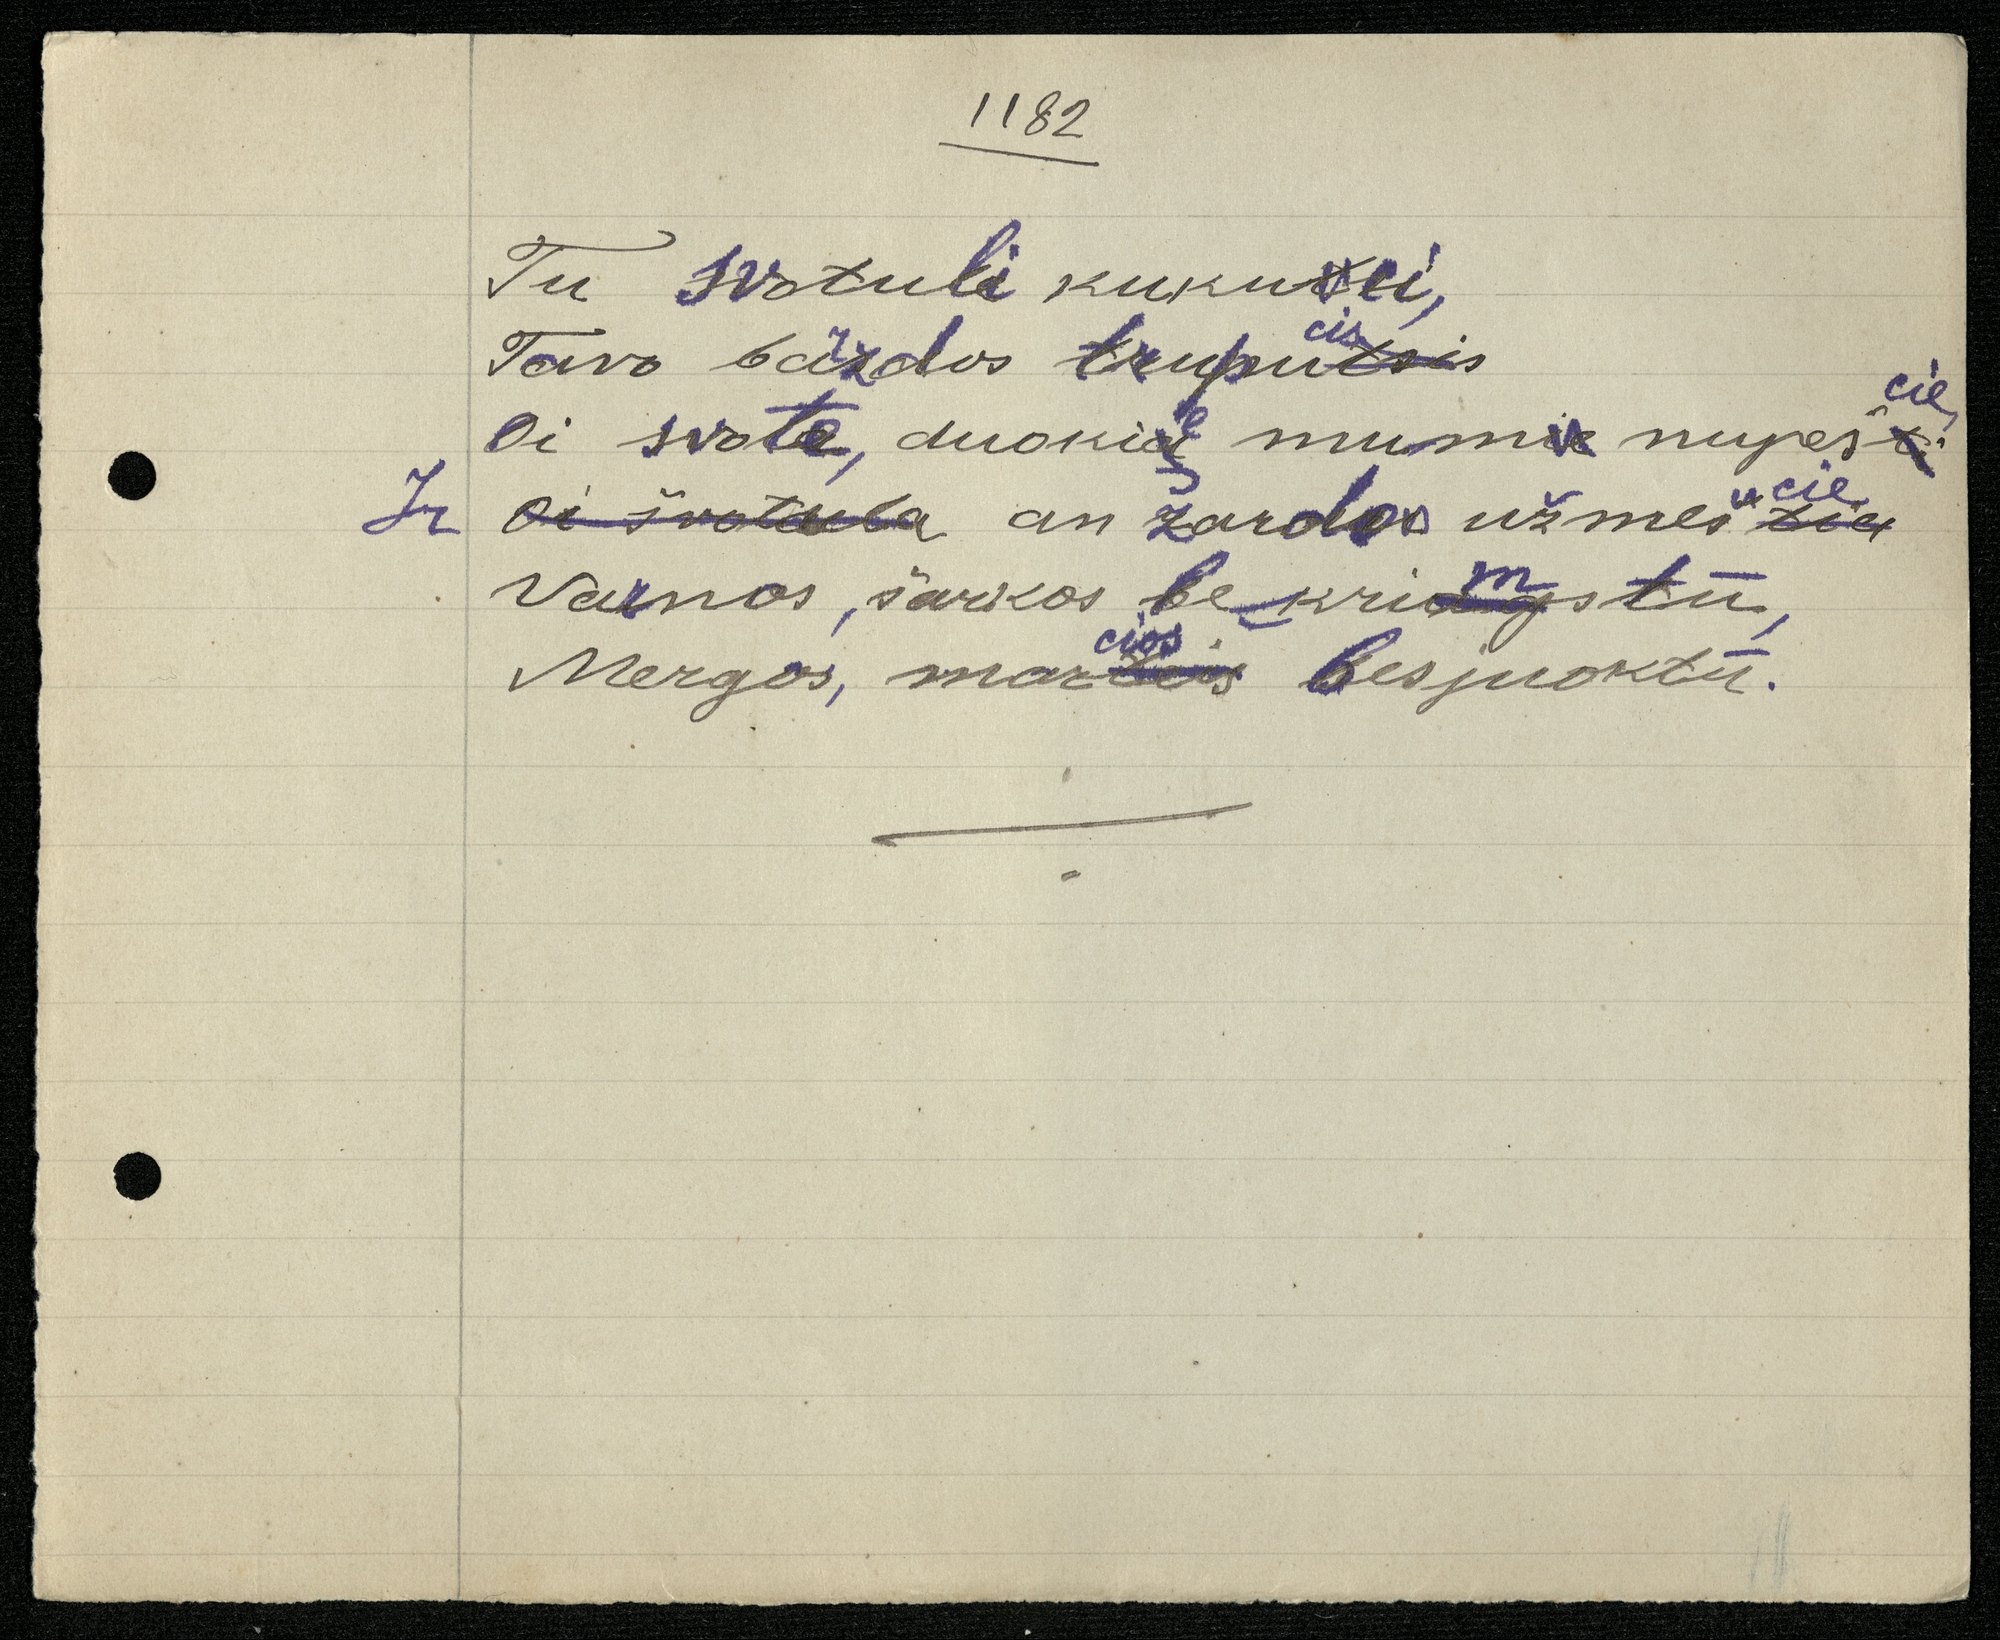 1182
Tu svotuli kukuci,
Tavo barzdos trupucis
Oi svote, duokie mumi nupešcie,
Ir an žardos užmešcie
Varnos, šarkos be krimstū,
Mergos, marcios besjuoktū.